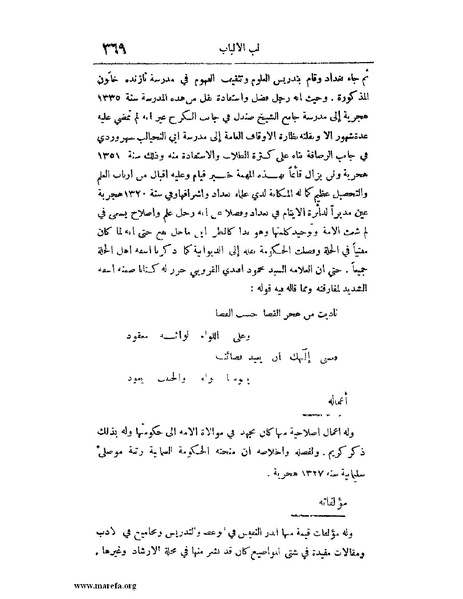 لب الألباب ٣٦٩
ثم جاء بغداد وقام بتدريس العلوم وتثقيف الفهوم في مدرسة نازنده خاتون
المذكورة . وحيث انه رجل فضل واستفادة نقل من هذه المدرسة سنة ١٣٣٥
هجرية إلى مدرسة جامع الشيخ صندل في جانب الكرخ غير انه لم تمضي عليه
عدة شهور الا ونقلته نظارة الاوقاف العامة إلى مدرسة ابي النجيب السهروردي
في جانب الرصافة بناء على كثرة الطلاب والاستفادة منه وذلك سنة ١٣٥١
هجرية ولن يزال قائماً بهذه المهمة خير قيام وعليه اقبال من ارباب العلم
والتحصيل عظيم لما له المكانة لدى علماء بغداد واشرافها وفي سنة ١٣٢٠ هجرية
عين مديراً لدائرة الايتام في بغداد وفضلا عن انه رجل علم واصلاح يسعى في
لم شعث الامة وتوحيد كلمتها وهو بهذا حتى انه لما كان
مفتياً في الحلة وفصلت الحكومة نقله إلى الديوانية كما ذكرنا اسفه اهل الحلة
جميعاً . حتى ان العلامة السيد محمود افندي القزويني حرر له كتابا ضمنه اسفه
الشديد لمفارقته ومما قاله فيه قوله :
ناديت من هجر الفضا حسب الفضا
وعلى اللواء لوائه معقود
فعسى إلهك أن يعيد
يوما والحبيب يعود
أعماله
وله اعمال اصلاحية منها كان مجتهد في موالاة الامة الى حكومتها وله بذلك
ذكر كريم . ولفضله واخلاصه ان منحته الحكومة العثمانية رتبة موصلى
سليمانية سنة ١٣٢٧ هجرية .
مؤلفاته
وله مؤلفات قيمة منها الدر النفيس في الوعظ والتدريس ومجاميع في الادب
ومقالات مفيدة في شتى المواضيع كان قد نشر منها في مجلة الارشاد وغيرها .
www.marefa.org